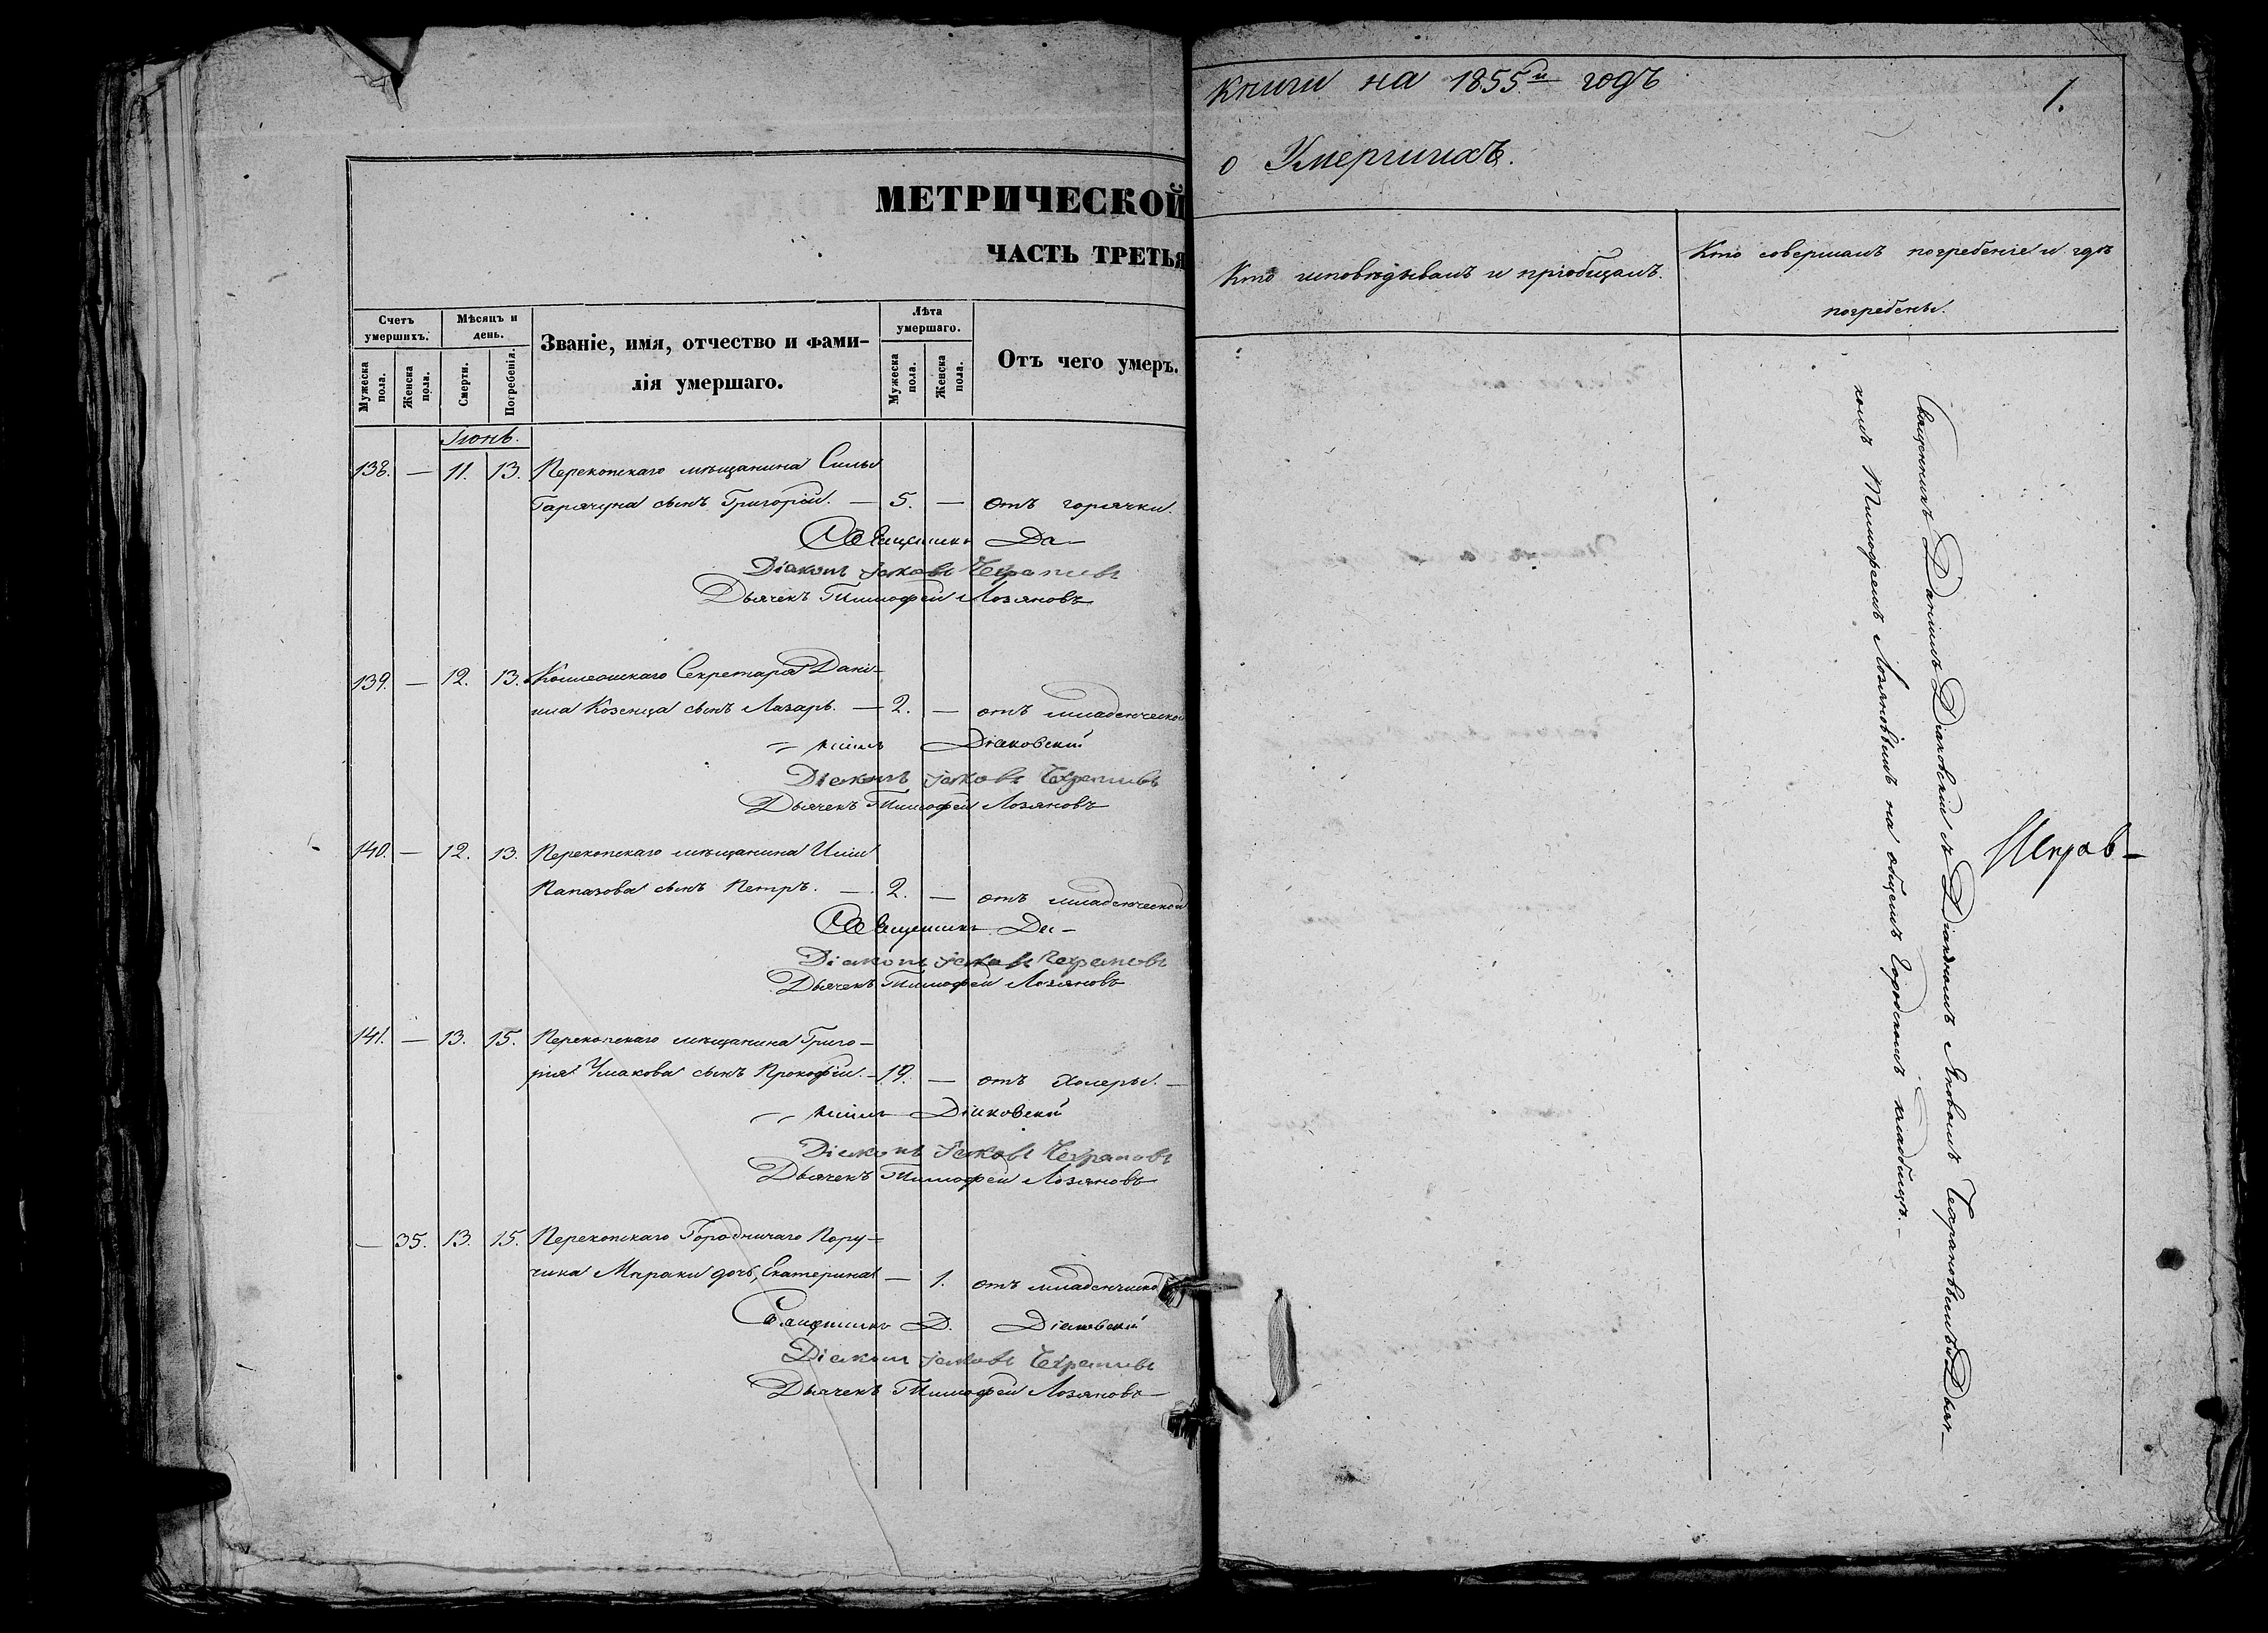 МЕТРИЧЕСКОЙ
ЧАСТЬ ТРЕТЬЯ
Счетъ умершихъ.
Мужеска пола.
Женска пола.
Мѣсяцъ и день.
Смерти.
Погребенія.
Званіе, имя, отчество и фами-
лія умершаго.
Лѣта умершаго.
Мужеска пола.
Женска пола.
Отъ чего умеръ.
Іюнь.
138. — 11. 13. Перекопскаго мѣщанина Силы
сынъ Григорій. — 5. — отъ горячки.
Священникъ Да-
Діаконъ Іаковъ Чехрановъ
Дьячекъ Тимофей Лозяновъ
139. — 12. 13. Коллежскаго Секретаря Дані-
ила Козенца сынъ Лазарь. — 2. — отъ младенческой
ніилъ Діаковскій
Діаконъ Іаковъ Чехрановъ
Дьячекъ Тимофей Лозяновъ
140. — 12. 13. Перекопскаго мѣщанина Иліи
Папазова сынъ Петръ. — 2. — отъ младенческой
Священникъ Да-
Діаконъ Іаковъ Чехрановъ
Дьячекъ Тимофей Лозяновъ
141. — 13. 15. Перекопскаго мѣщанина Григо-
рія сынъ Прокофій. — 19. — отъ холеры. —
ніилъ Діаковскій
Діаконъ Іаковъ Чехрановъ
Дьячекъ Тимофей Лозяновъ
— 35. 13. 15. Перекопскаго Городничаго Пору-
чика дочь, Екатерина — 1. отъ младенческой
Священникъ Д. Діаковскій
Діаконъ Іаковъ Чехрановъ
Дьячекъ Тимофей Лозяновъ
книги на 1855й годъ
1.
о Умершихъ.
Кто исповѣдывалъ и пріобщалъ.
Кто совершалъ погребеніе и гдѣ
погребены.
Священникъ Даніилъ Діаковскій съ Діакономъ Яковомъ Чехрановымъ и Дьяч-
комъ Тимофеемъ Лозяновымъ на общемъ Городскомъ кладбищѣ. —